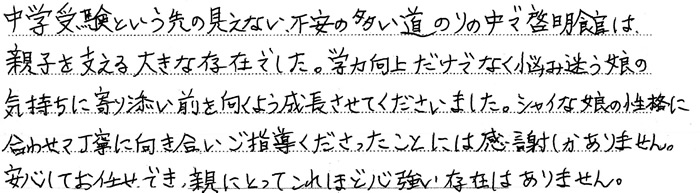 中学受験という先の見えない、不安の多い道のりの中で啓明館は、
親子を支える大きな存在でした。学力向上だけでなく悩み迷う娘の
気持ちに寄り添い前を向くよう成長させてくださいました。シャイな娘の性格に
合わせて丁寧に向き合いご指導くださったことには感謝しかありません。
安心してお任せでき、親にとってこれほど心強い存在はありません。